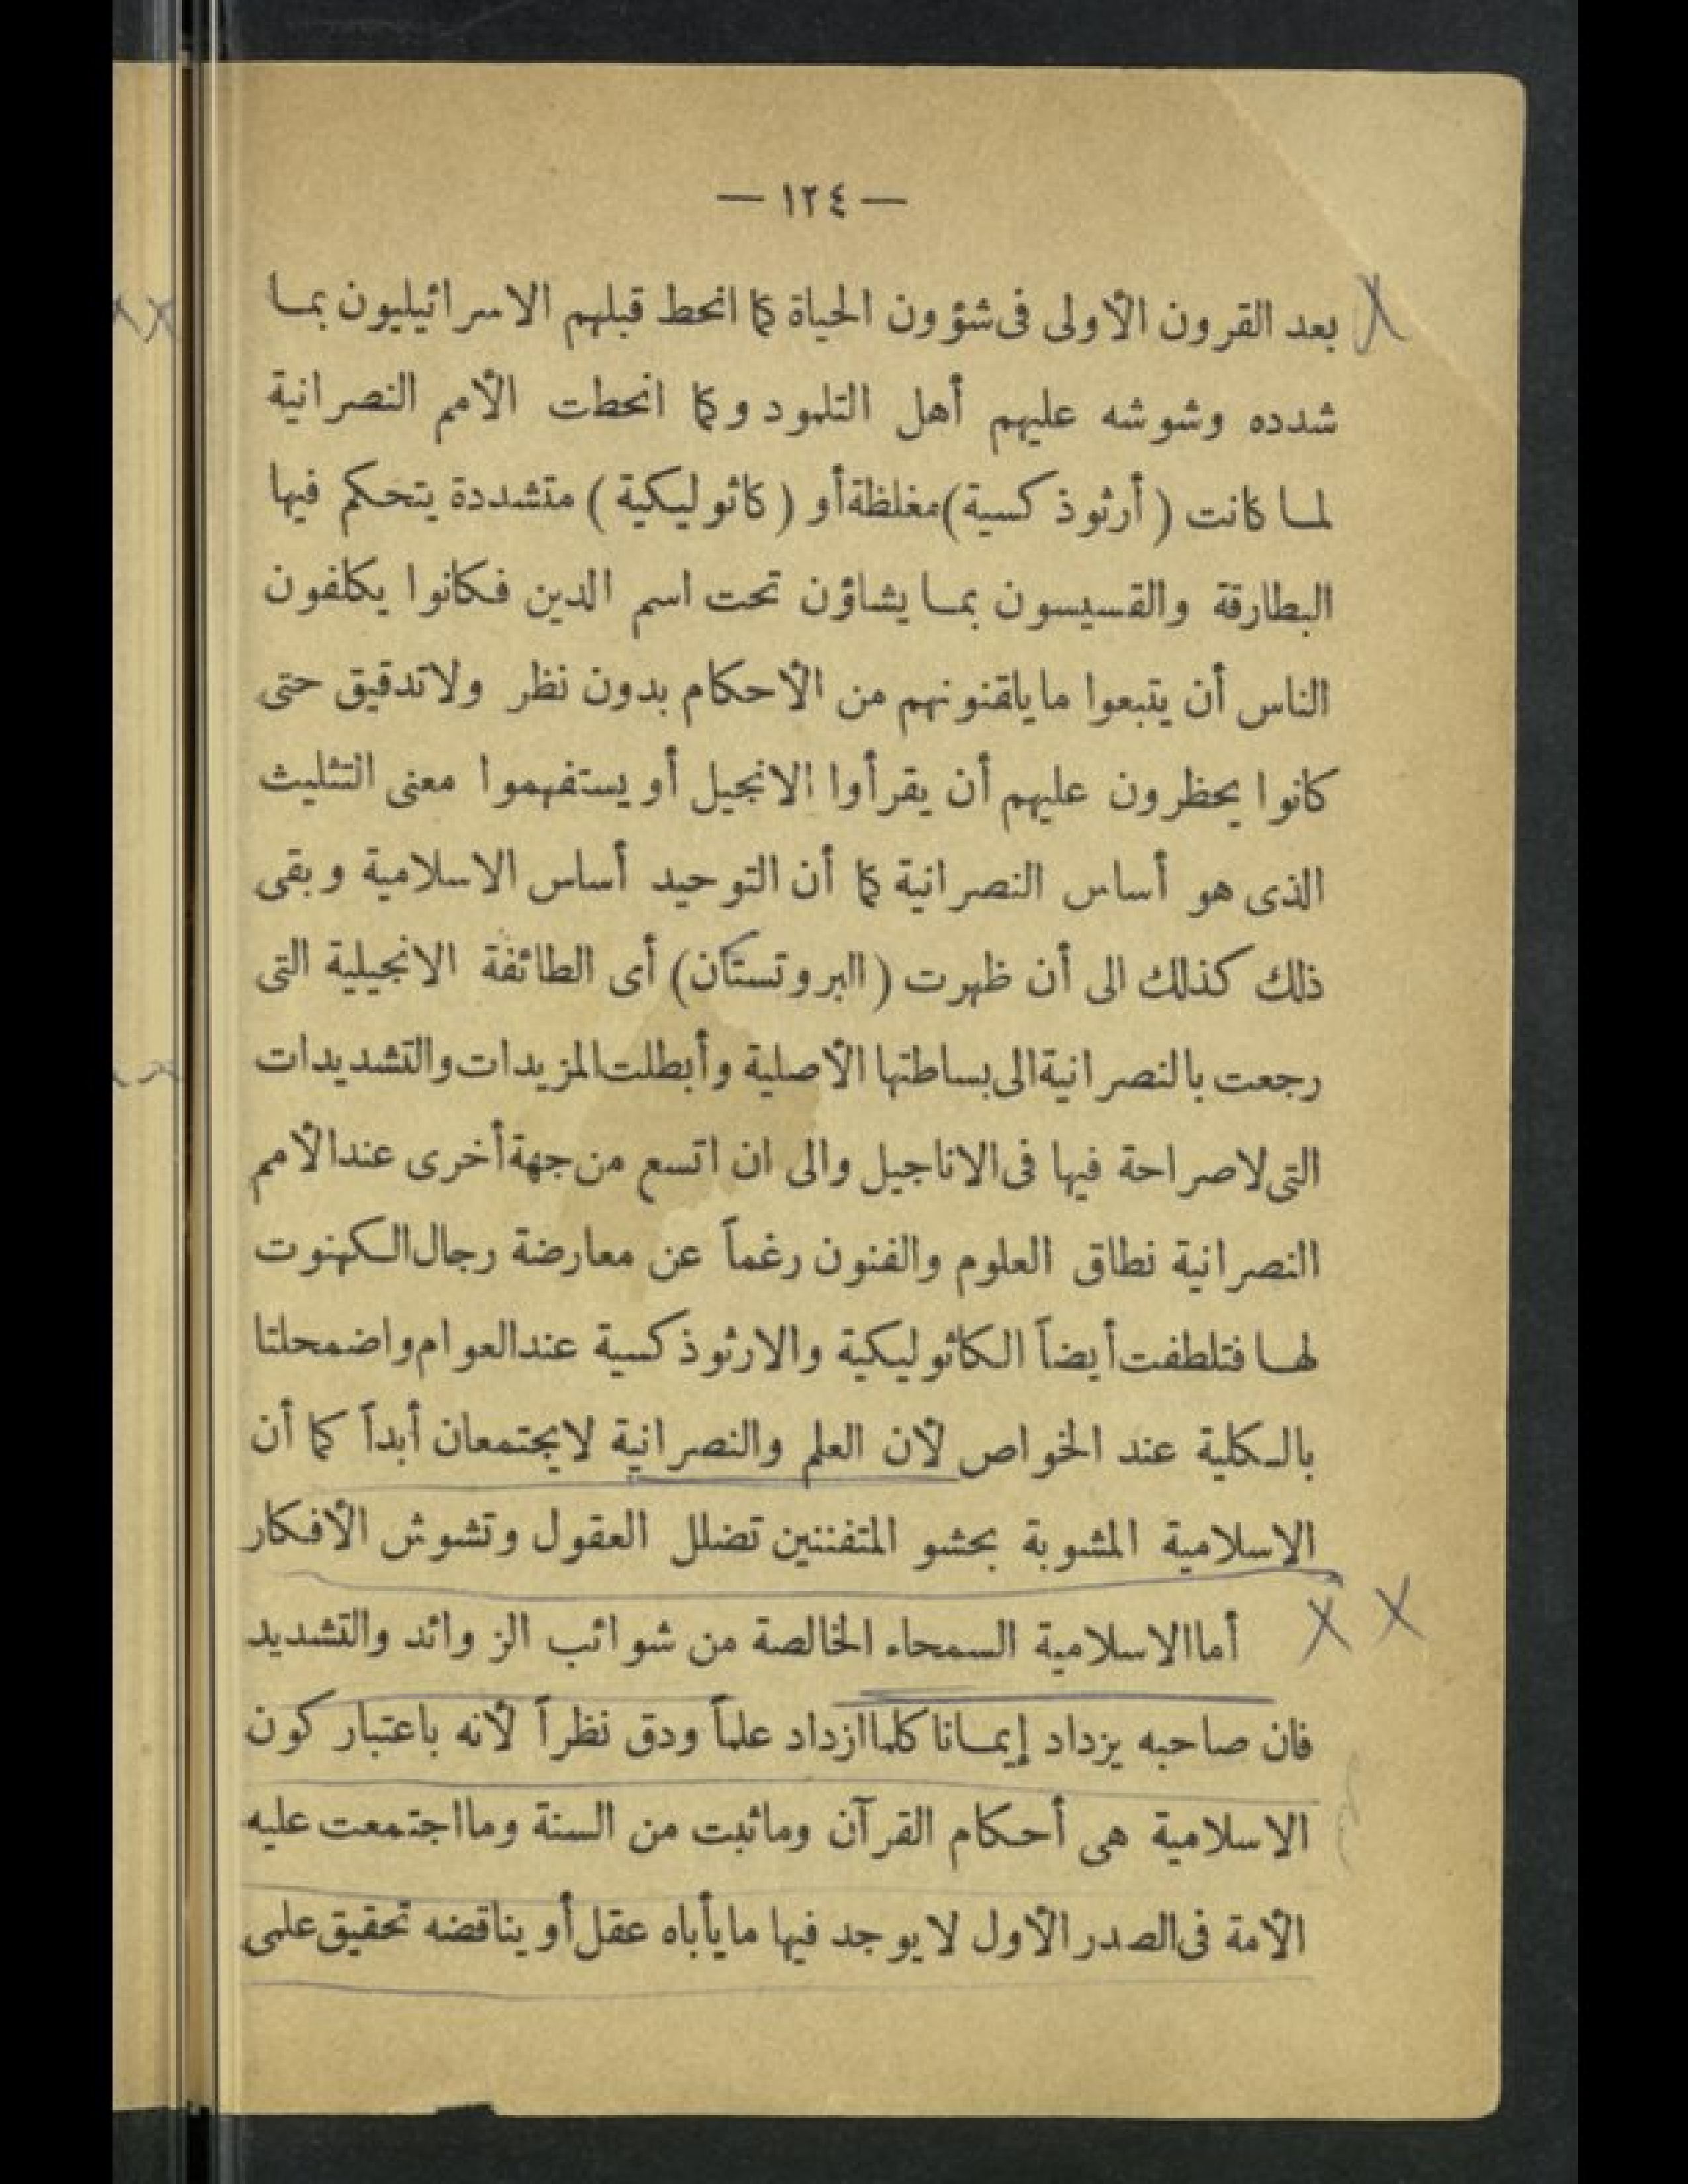 — ١٢٤ —
بعد القرون الأولى فى شؤون الحياة كما انحط قبلهم الاسرائيليون بما
شدده وشوشه عليهم أهل التلمود وكما انحطت الأمم النصرانية
لما كانت (أرثوذكسية) مغلظة أو (كاثوليكية) متشددة يتحكم فيها
البطارقة والقسيسون بما يشاؤن تحت اسم الدين فكانوا يكلفون
الناس أن يتبعوا ما يلقنونهم من الأحكام بدون نظر ولا تدقيق حتى
كانوا يحظرون عليهم أن يقرأوا الانجيل أو يستفهموا معنى التثليث
الذى هو أساس النصرانية كما أن التوحيد أساس الاسلامية وبقى
ذلك كذلك الى أن ظهرت (البروتستان) أى الطائفة الانجيلية التى
رجعت بالنصرانية الى بساطتها الأصلية وأبطلت المزيدات والتشديدات
التى لاصراحة فيها فى الاناجيل والى ان اتسع من جهة أخرى عند الأمم
النصرانية نطاق العلوم والفنون رغماً عن معارضة رجال الكهنوت
لها فتلطفت أيضاً الكاثوليكية والارثوذكسية عند العوام واضمحلتا
بالكلية عند الخواص لأن العلم والنصرانية لا يجتمعان أبداً كما أن
الإسلامية المشوبة بحشو المتفننين تضلل العقول وتشوش الأفكار
أما الاسلامية السمحاء الخالصة من شوائب الزوائد والتشديد
فان صاحبه يزداد إيمانا كلما ازداد علماً ودق نظراً لأنه باعتبار كون
الاسلامية هى أحكام القرآن وما ثبت من السنة وما اجتمعت عليه
الأمة فى الصدر الأول لا يوجد فيها ما يأباه عقل أو يناقضه تحقيق علمى